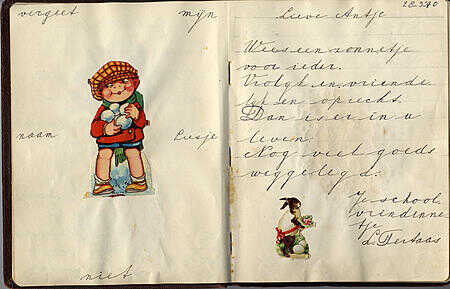 vergeet mijn
naam Liesje
niet
28.3.40
Lieve Antje
Wees een zonnetje
voor ieder.
Vrolyk en vriende
lyk en oprecht.
Dan is er in u
leven.
Nog veel goeds
weggelegd.
Je school
vriendinne
tje